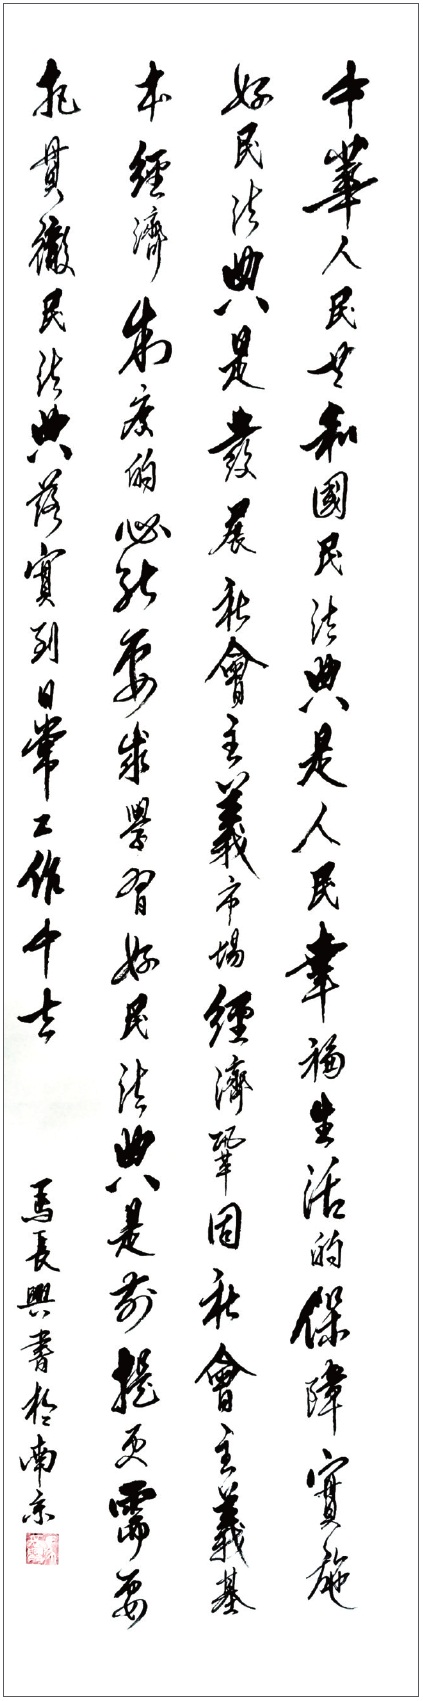 中華人民共和國民法典是人民幸福生活的保障實施
好民法典是發展社會主義市場經濟鞏固社會主義基
本經濟制度的必然要求學習好民法典是前提更需要
把貫徹民法典落實到日常工作中去
馬長興書於南京